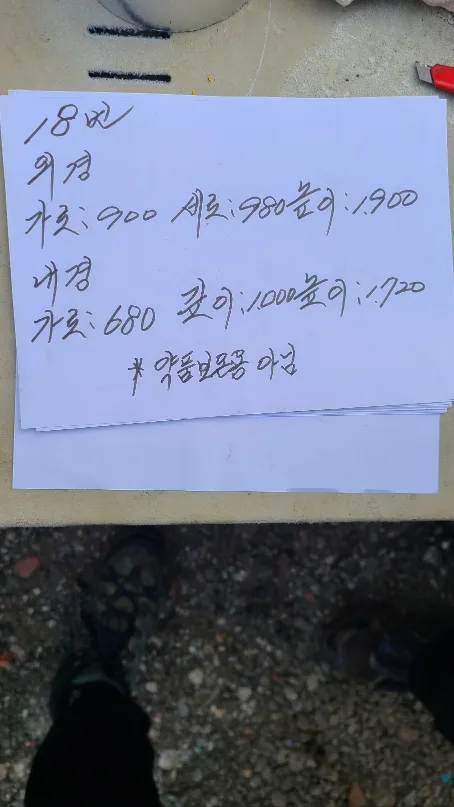 18번
외경
가로:900 세로:980 높이:1.900
내경
가로:680 깊이:1.000 높이:1.720
* 약품보온용 아님